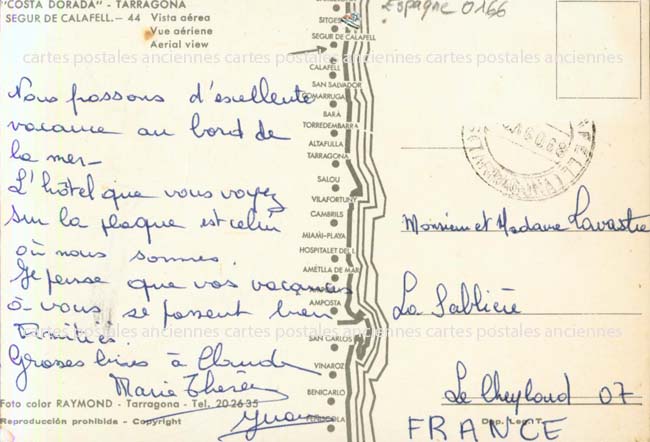 "COSTA DORADA" - TARRAGONA
SEGUR DE CALAFELL.- 44 Vista aérea
Vue aérienne
Aerial view
Espagne 0166
SITGES
SEGUR DE CALAFELL
CALAFELL
SAN SALVADOR
COMARRUGA
BARÁ
TORREDEMBARRA
ALTAFULLA
TARRAGONA
SALOU
VILAFORTUNY
CAMBRILS
MIAMI-PLAYA
HOSPITALET DEL I.
AMETLLA DE MAR
AMPOSTA
SAN CARLOS
VINAROZ
BENICARLO
PEÑISCOLA
cartes postales anciennes cartes postales anciennes cartes postales anciennes
Nous passons d'excellente
vacance au bord de
la mer-
L'hôtel que vous voyez
sur la plaque est celui
où nous sommes.
Je pense que vos vacances
à vous se passent bien
Amitiés.
Grosses bises à Claude
Marie Thérèse
Yvan
Monsieur et Madame Lavastre
La Sablière
Le Cheylard 07
FRANCE
cartes postales anciennes cartes postales anciennes cartes postales anciennes
Foto color RAYMOND - Tarragona - Tel. 20 26 35
Reproducción prohibida - Copyright
Dep. Legal T.